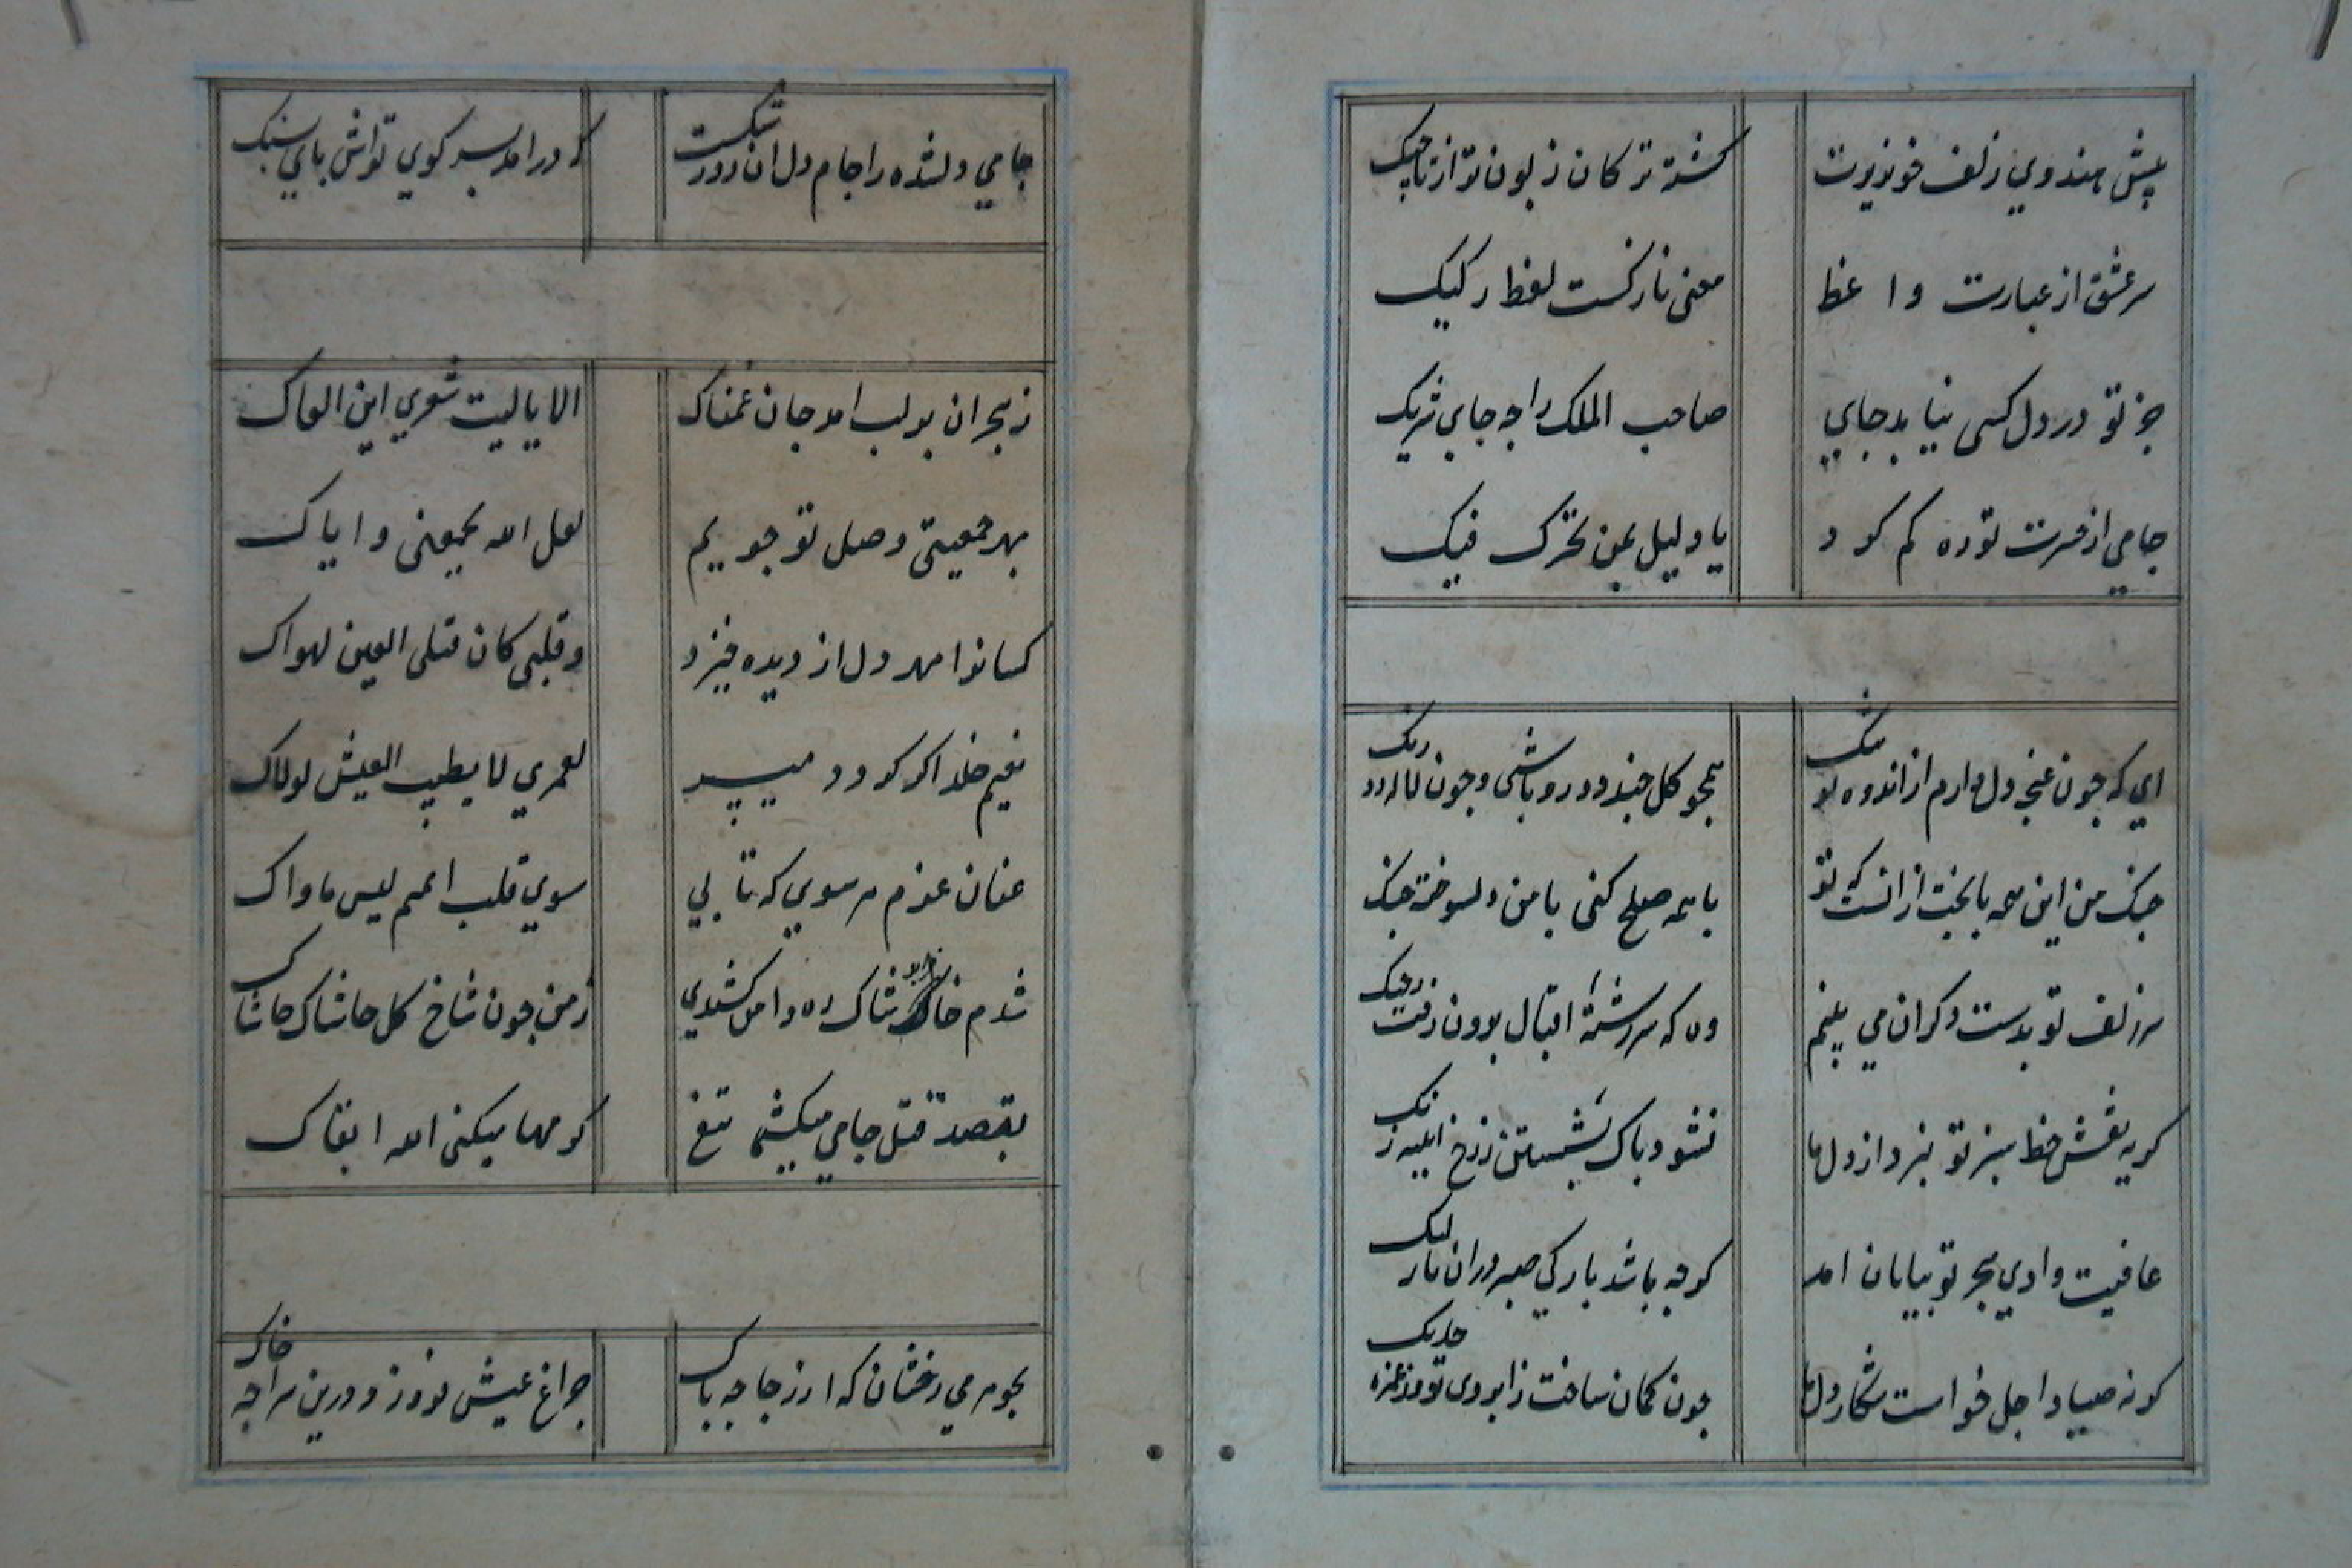 پیش هندوي زلف خونریزت کشته ترکان زبون تو از تاجیک
سر عشق از عبارت واعظ معنی نازکست لفظ رکیک
جز تو در دل کسی نیابد جاي صاحب الملک را چه جاي شریک
جامي از حسرت تو ره کم کرد یا دلیل لمن تحیرک فیک
اي که جون غنجه دل دارم از اندوه تو تنک همجو کل جند دورو باشی و جون لاله دو رنک
جنک من این همه با بخت از انست که تو با همه صلح کنی با من دلسوخته جنک
سر زلف تو بدست دکران مي بینم وه که سررشتهٔ اقبال برون رفت ز جنک
کریه نقش خط سبز تو نبرد از دل ما نشود باک بشستن ز رخ ایینه زنک
عافیت وادي هجر تو ببایان امد کرجه باشد بارکي صبر دران ره لنک
کرنه صیاد اجل خواست شکار دل ما جون کمان ساخت ز ابروي تو وز غمزه خدنک
جامي دلشده را جام دل ان روز شکست که درامد بسر کوي تواش باي بسنک
ز هجران بر لب امد جان غمناک الا یا لیت شعري این القاک
بهر جمعیتي وصل تو جویم لعل الله یجمعنی و ایاک
کسانرا مهر دل از دیده خیزد و قلبی کان قبل العین یهواک
نعیم خلد اکر کردد میسر لعمري لا یطیب العیش لولاک
عنان عزم هر سوي که تابي سوي قلب المتیم لیس ماواک
شدم خاشاک ره دامن کشیدي ز من جون شاخ کل حاشاک حاشاک
بقصد قتل جامي میکشي تیغ کرمها میکنی الله ابقاک
بجوهر مي رخشان که از زجاجه باک جراغ عیش فروزد درین سراجه خاک